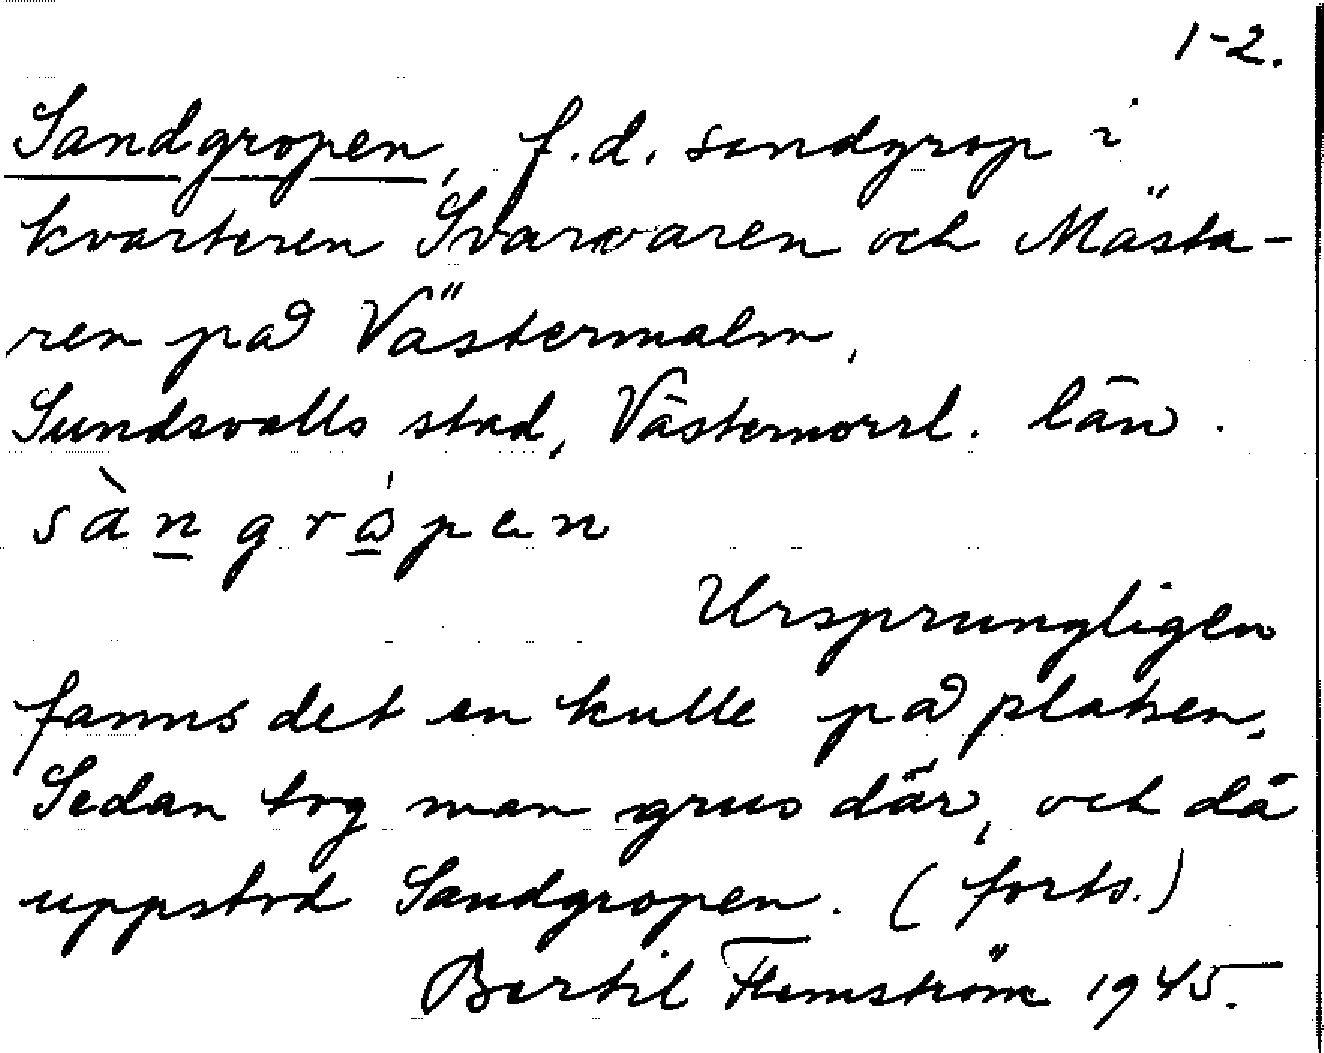 1-2.
Sandgropen, f.d. sandgrop i
kvarteren Svarvaren och Mästa-
ren på Västermalm,
Sundsvalls stad, Västernorrl. län.
sàngrópen
Ursprungligen
fanns det en kulle på platsen.
Sedan tog man grus där, och då
uppstod Sandgropen. (forts.)
Bertil Flemström 1945.